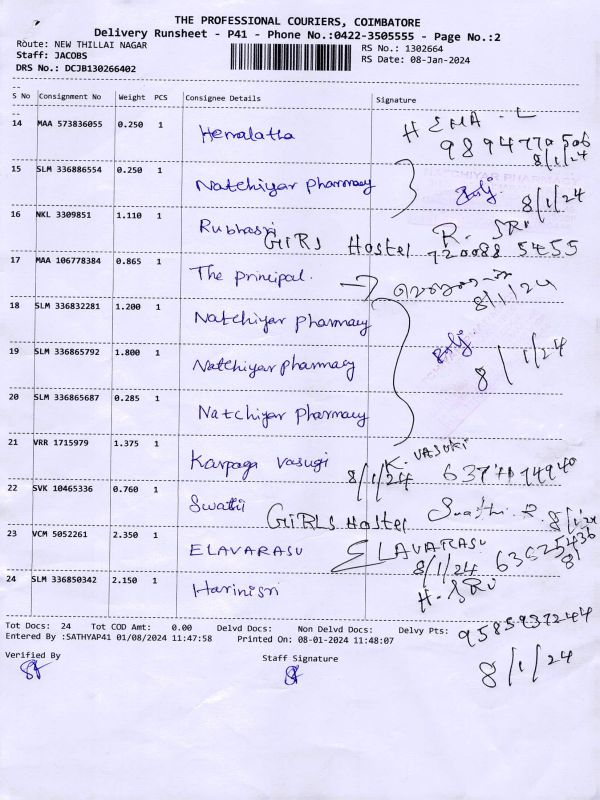 THE PROFESSIONAL COURIERS, COIMBATORE
Delivery Runsheet - P41 - Phone No.:0422-3505555 - Page No.:2
Route: NEW THILLAI NAGAR RS No.: 1302664
Staff: JACOBS RS Date: 08-Jan-2024
DRS No.: DCJB130266402
S No Consignment No Weight PCS Consignee Details Signature
14 MAA 573836055 0.250 1 Hemalatha HEMA . L
8/1/24
15 SLM 336886554 0.250 1 Natchiyar pharmacy 8/1/24
NATCHIYAR PHARMACY
16 NKL 3309851 1.110 1 Rubhasri R. SRI
GIRLS Hostel 720088 5455
17 MAA 106778384 0.865 1 The principal.
8/1/24
18 SLM 336832281 1.200 1 Natchiyar pharmacy
19 SLM 336865792 1.800 1 Natchiyar pharmacy 8/1/24
20 SLM 336865687 0.285 1 Natchiyar pharmacy
21 VRR 1715979 1.375 1 Karpaga vasugi K. VASUKI
8/1/24
22 SVK 10465336 0.760 1 Swathi
GIRLS Hostel
23 VCM 5052261 2.350 1 ELAVARASU ELAVARASU
8/1/24
24 SLM 336850342 2.150 1 Harinisri H. SRI
Tot Docs: 24 Tot COD Amt: 0.00 Delvd Docs: Non Delvd Docs: Delvy Pts:
9585937244
Entered By :SATHYAP41 01/08/2024 11:47:58 Printed On: 08-01-2024 11:48:07
Verified By Staff Signature
8/1/24